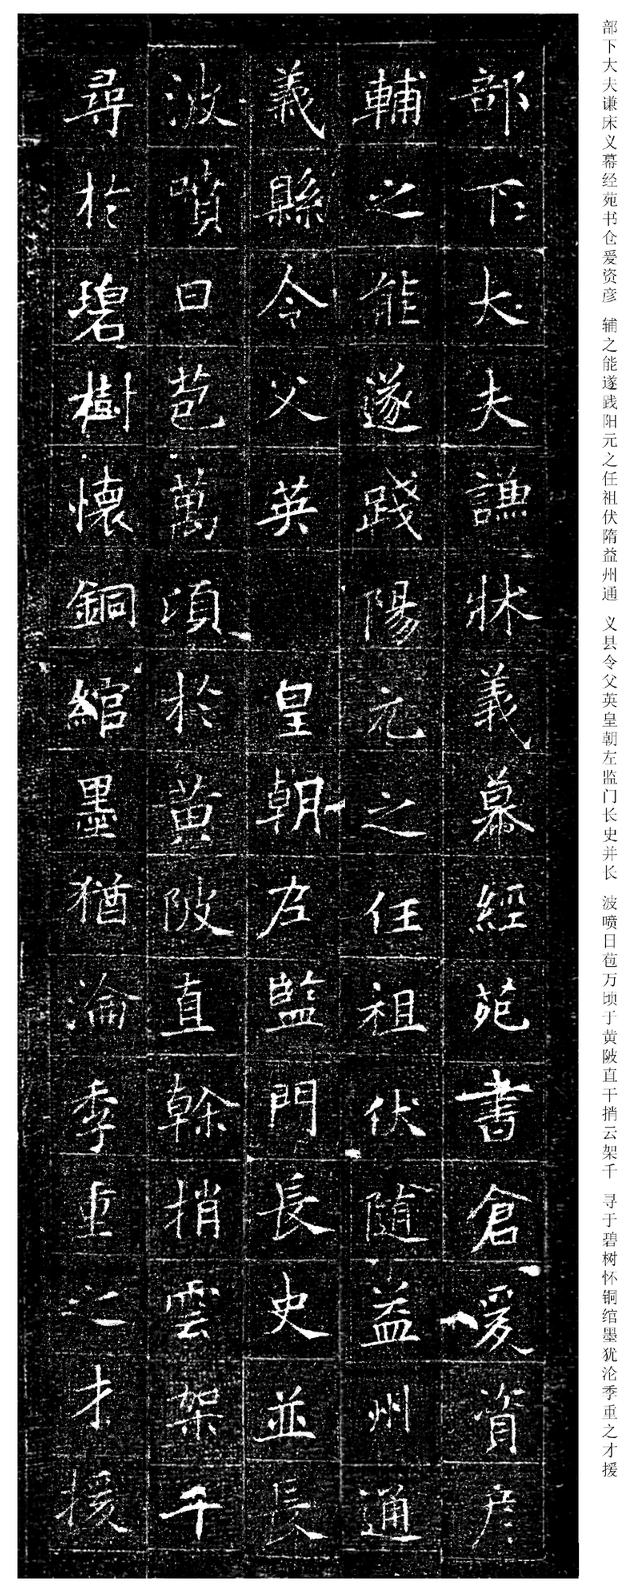 部下大夫謙牀義慕經苑書倉爰資彦
輔之能遂踐陽元之任祖伏隨益州通
義縣令父英 皇朝左監門長史並長
波噴日苞萬頃於黄陂直幹捎雲架千
尋於碧樹懷銅綰墨猶淪季重之才援
部下大夫谦床义幕经苑书仓爰资彦 辅之能遂践阳元之任祖伏隋益州通 义县令父英皇朝左监门长史并长 波喷日苞万顷于黄陂直干捎云架千 寻于碧树怀铜绾墨犹沦季重之才援